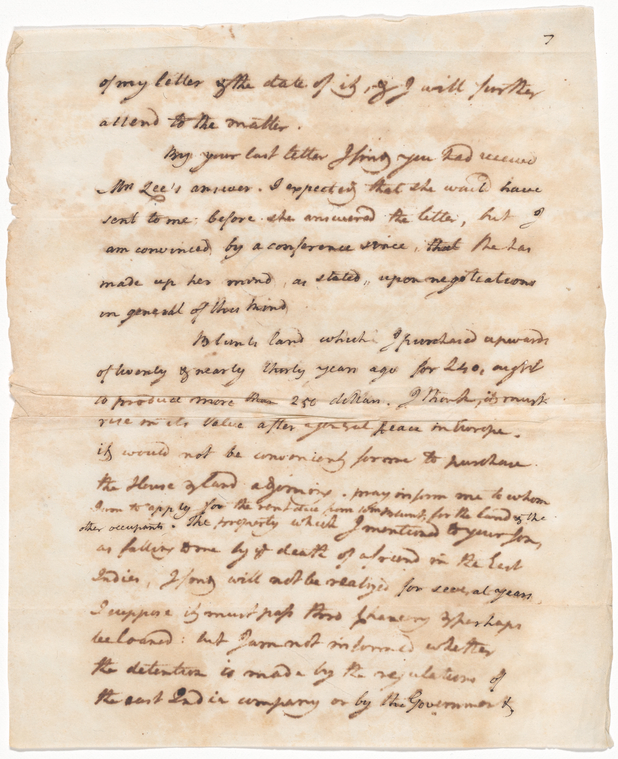 7
of my letter & the date of it, & I will further
attend to the matter.
By your last letter I find you had received
Mrs Lee's answer. I expected that she would have
sent to me before she answered the letter, but I
am convinced by a conference since, that she has
made up her mind, as stated, upon negotiations
in general of this kind
Blunts land which I purchased upwards
of twenty & nearly thirty years ago for 240, ought
to produce more than 250 dollars. I think, it must
rise in its value after a general peace in Europe.
it would not be convenient for me to purchase
the House & land adjoining. pray inform me to whom
I am to apply for the rent due from for the land & the
other occupants. The property which I mentioned to your son,
as falling to me by the death of a friend in the East
Indies, I find will not be realized for several years,
I suppose it must pass thro chancery & perhaps
be loaned: but I am not informed whether
the detention is made by the regulations of
the east India company or by the Government &